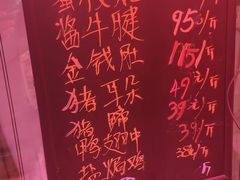 酱牛腱 95元/斤
金钱肚 115/斤
猪耳朵 49元/斤
猪蹄 39元/斤
鸭翅中 39/斤
盐焗鸡 /斤